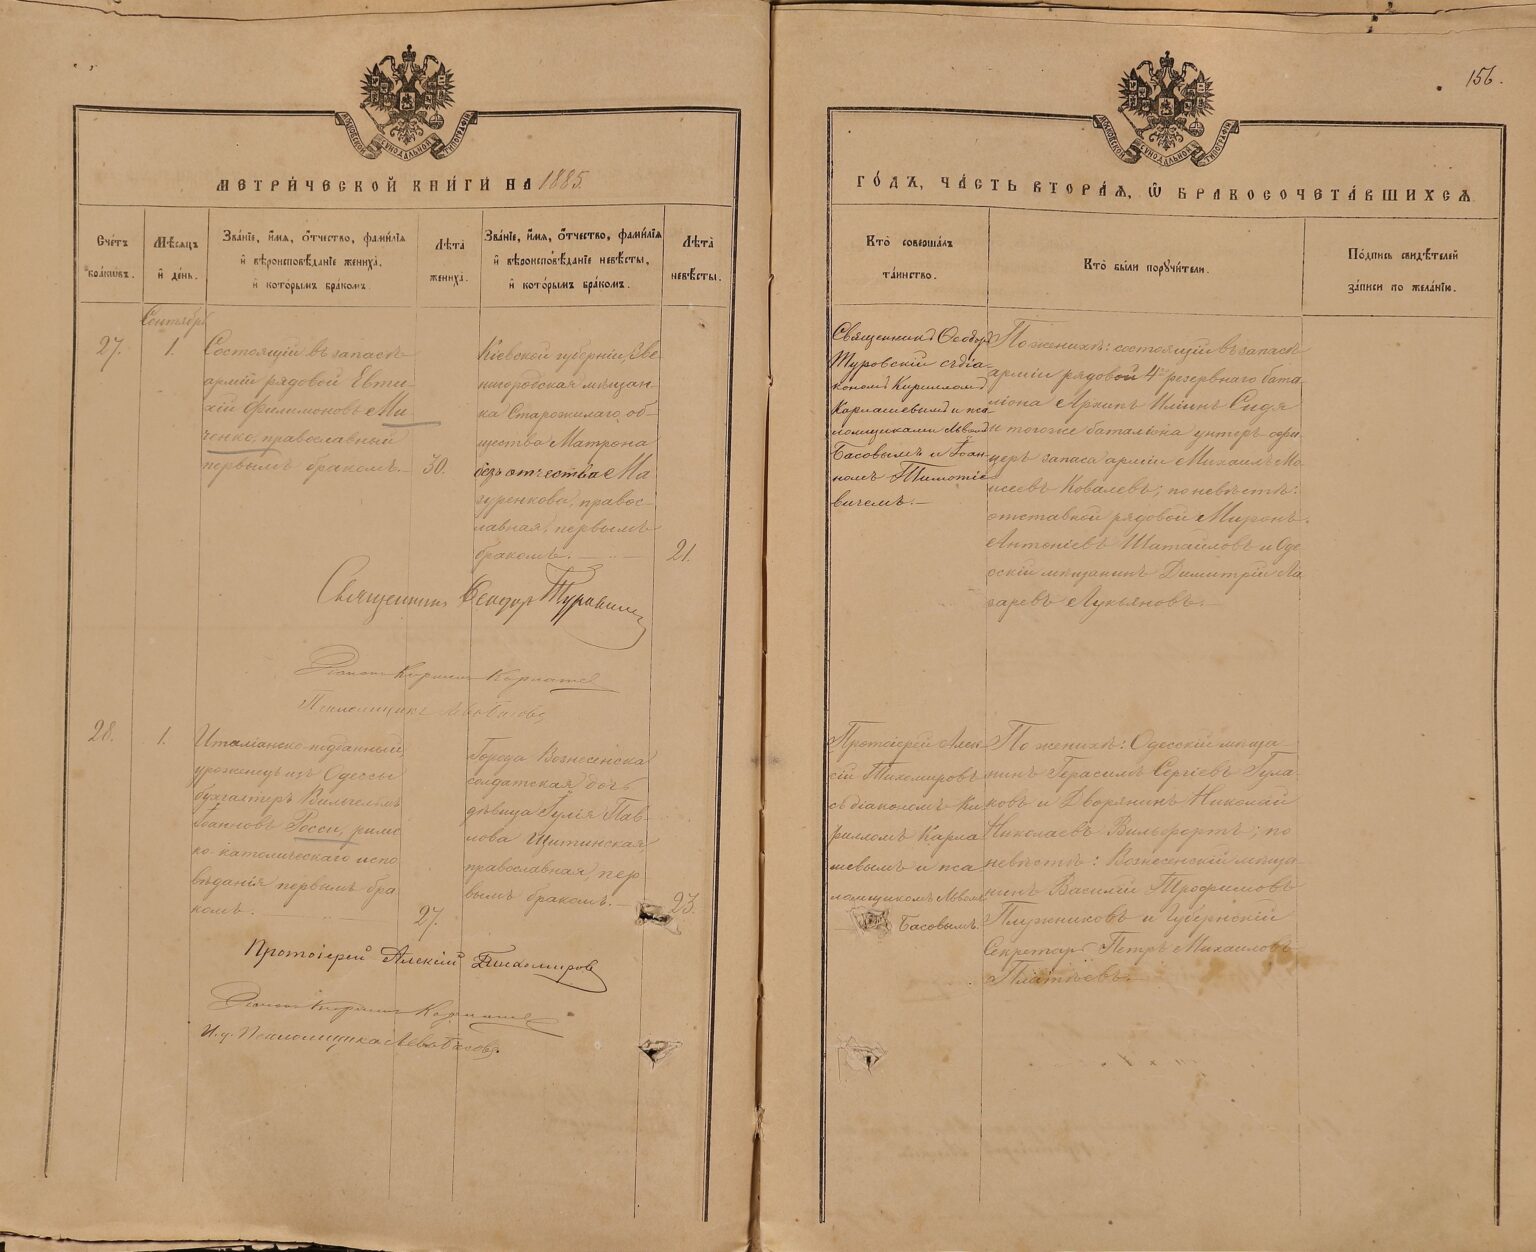 156.
МОСКОВСКОЙ СѴНОДАЛЬНОЙ ТИПОГРАФІИ
МОСКОВСКОЙ СѴНОДАЛЬНОЙ ТИПОГРАФІИ
МЕТРИ́ЧЕСКОЙ КНИ́ГИ НА 1885
ГО́ДЪ, ЧА́СТЬ ВТОРА́Ѧ, Ѡ҆ БРАКОСОЧЕТА́ВШИХСѦ
Сче́тъ
бра́ковъ.
Мѣ́сѧцъ
и҆ де́нь.
Зва́нїе, и҆́мѧ, ѻ҆́тчество, фами́лїѧ
и҆ вѣроисповѣ́данїе жениха̀,
и҆ кото́рымъ бра́комъ.
Лѣ́та
жениха̀.
Зва́нїе, и҆́мѧ, ѻ҆́тчество, фами́лїѧ
и҆ вѣроисповѣ́данїе невѣ́сты,
и҆ кото́рымъ бра́комъ.
Лѣ́та
невѣ́сты.
Кто̀ соверша́лъ
та́инство.
Кто̀ бы́ли порꙋчи́тели.
По́дпись свидѣ́телей
за́писи по жела́нїю.
Сентябрь
27.
1.
Состоящій въ запасѣ
арміи рядовой Евти-
хій Филимоновъ Ми-
ченко, православный
первымъ бракомъ.
30.
Кіевской губерніи Зве-
нигородская мѣщан-
ка Старожилаго об-
щества Матрона
безъ отчества Ма-
зуренкова, правос-
лавная, первымъ
бракомъ.
21.
Священникъ Ѳеодоръ
Туровскій съ діа-
кономъ Кирилломъ
Карпашевымъ и пса-
ломщиками Львомъ
Басовымъ и Іоан-
номъ Тимоѳіе-
вичемъ.
По женихѣ: состоящій въ запасѣ
арміи рядовой 4го резервнаго бата-
ліона Архипъ Ильинъ Сидя
и тогоже баталіона унтеръ офи-
церъ запаса арміи Михаилъ Мо-
исеевъ Ковалевъ; по невѣстѣ:
отставной рядовой Миронъ
Антоніевъ Шатайловъ и Оде-
скій мѣщанинъ Димитрій Ла-
заревъ Лукьяновъ.
Священникъ Ѳеодоръ Туровскій
Діаконъ Кириллъ Карпашев
Псаломщикъ Левъ Басовъ
28.
1.
Италіанско-подданный,
уроженецъ изъ Одессы
бухгалтеръ Вильгельмъ
Іоанновъ Росси, римс-
ко-католическаго испо-
вѣданія первымъ бра-
комъ.
27.
Города Вознесенска
солдатская дочь
дѣвица Гулія Пав-
лова Щитинская,
православная, пер-
вымъ бракомъ.
23.
Протоіерей Алек-
сій Тихомировъ
съ діакономъ Ки-
рилломъ Карпа-
шевымъ и пса-
ломщикомъ Львомъ
Басовымъ.
По женихѣ: Одесскій мѣща-
нинъ Герасимъ Сергіевъ Гула-
ковъ и Дворянинъ Николай
Николаевъ Вильфортъ; по
невѣстѣ: Вознесенскій мѣща-
нинъ Василій Трофимовъ
Плужниковъ и Губернскій
Секретарь Петръ Михаиловъ
Платіевъ.
Протоіерей Алексій Тихомировъ
Діаконъ Кириллъ Карпашев
И. д. Псаломщика Левъ Басовъ.